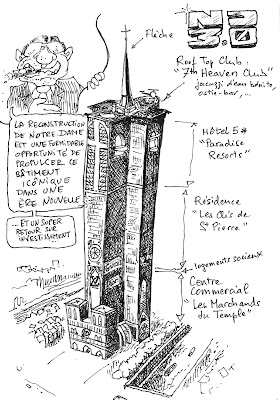 Flèche
ND
3.0
Roof Top Club:
"7th Heaven Club"
jacuzzi d'eau bénite,
ostie-bar,...
LA RECONSTRUCTION
DE NOTRE DAME
EST UNE FORMIDABLE
OPPORTUNITÉ DE
PROPULSER CE
BÂTIMENT
ICÔNIQUE
DANS UNE
ÈRE NOUVELLE
...ET UN SUPER
RETOUR SUR
INVESTISSEMENT
Hôtel 5*
"Paradise
Resorts"
Résidence
"Les Clés de
St Pierre"
logements sociaux
Centre
Commercial
"Les Marchands
du Temple"